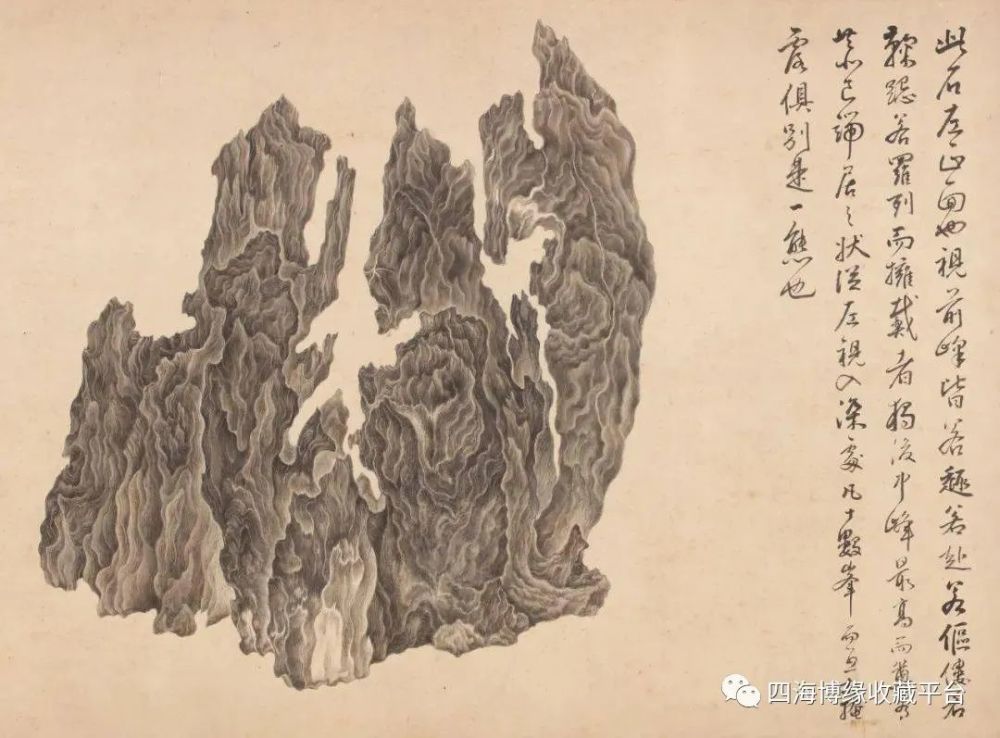 此石左正面也視前峰皆若趨若赴若傴僂若
鞠跽若羅列而擁戴者獨後中峰最高而尊有
恭己端居之狀從左視入深處凡十數峯而掩
露俱別是一態也
四海博缘收藏平台